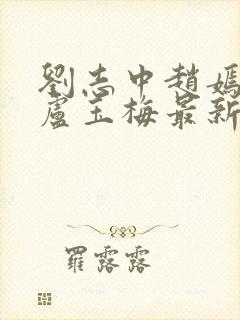 劉志中趙媽
盧玉梅最新
羅露露